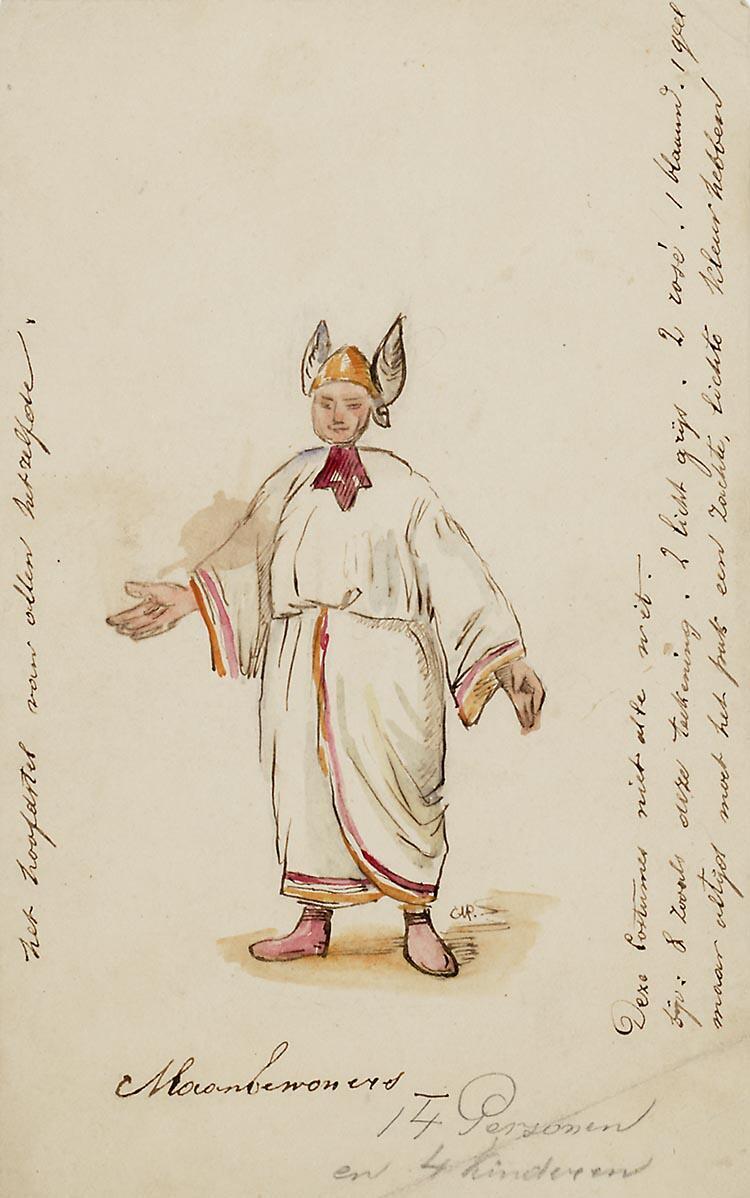 het hoofdstel van allen hetzelfde.
Deze Costumes niet alle wit.
bijv: 8 zooals deze teekening. 2 licht grijs. 2 rosé. 1 blauw. 1 geel
maar altijd moet het pak een zachte, lichte kleur hebben
Maanbewoners
14 Personen
en 4 kinderen